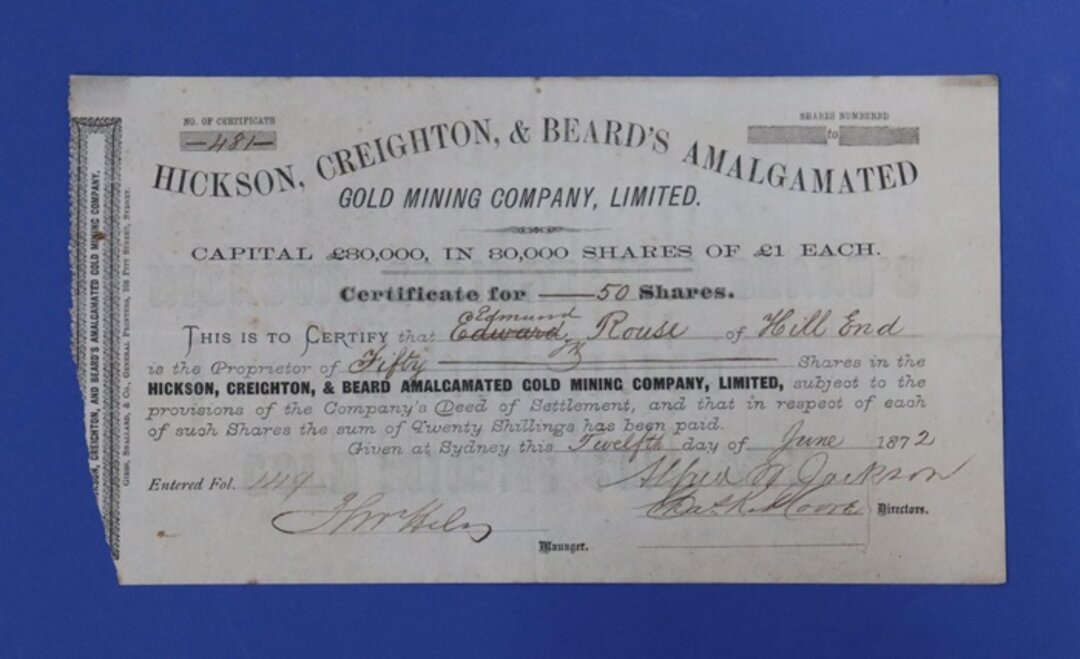 NO. OF CERTIFICATE
—481—
SHARES NUMBERED
to
HICKSON, CREIGHTON, & BEARD'S AMALGAMATED
GOLD MINING COMPANY, LIMITED.
CAPITAL £80,000, IN 80,000 SHARES OF £1 EACH.
Certificate for — 50 Shares.
Edmund
THIS IS TO CERTIFY that Edward Rouse of Hill End
is the Proprietor of Fifty Shares in the
HICKSON, CREIGHTON, & BEARD AMALGAMATED GOLD MINING COMPANY, LIMITED, subject to the
provisions of the Company's Deed of Settlement, and that in respect of each
of such Shares the sum of Twenty Shillings has been paid.
Given at Sydney this Twelfth day of June 1872
Entered Fol. 149
Alfred Jackson
Chas. K. Moore Directors.
Manager.
HICKSON, CREIGHTON, AND BEARD'S AMALGAMATED GOLD MINING COMPANY,
GIBBS, SHALLARD, & CO., GENERAL PRINTERS, 108 PITT STREET, SYDNEY.